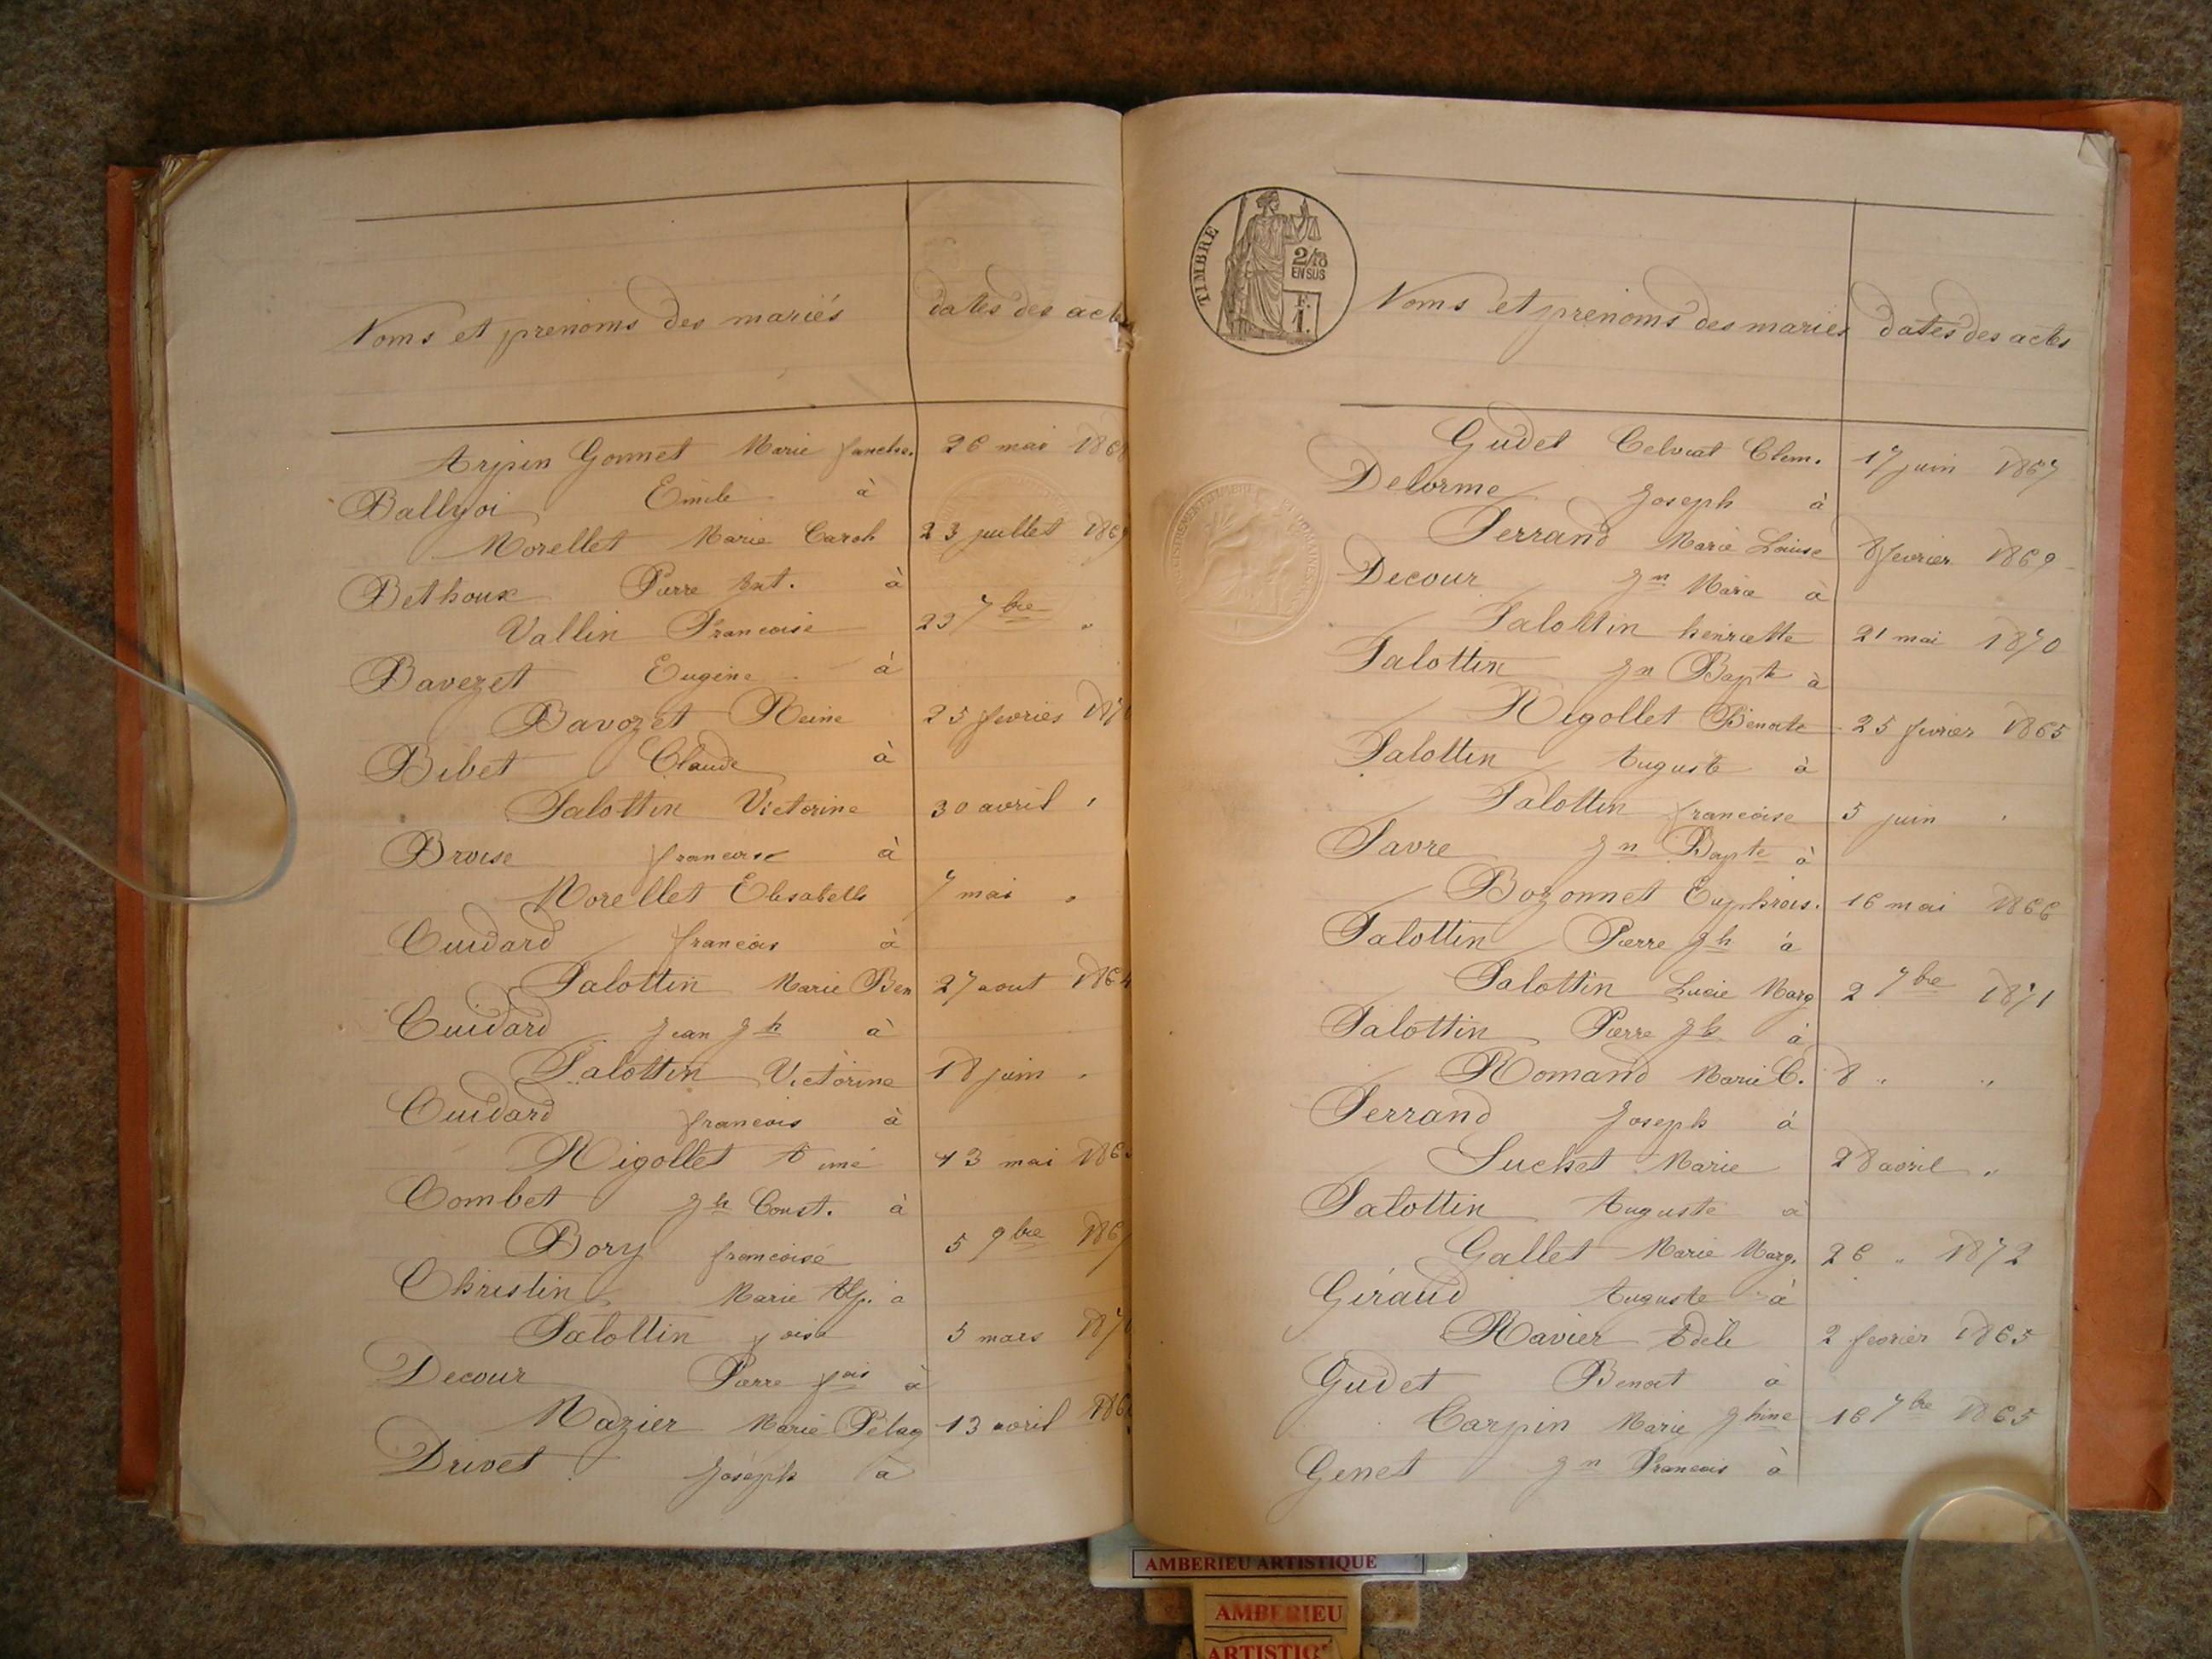 Noms et prenoms des mariés dates des actes
Arpin Gonnet Marie 26 mai
Ballyoi Emile à
Morellet Marie Carol 23 juillet 1869
Bethoux Pierre Bat. à
Vallin Francoise 23 7bre "
Bavozet Eugène à
Bavozet Reine 25 fevrier
Bibet Claude à
Falottin Victorine 30 avril "
Broise francoise à
Morellet Elisabeth 7 mai "
Cuidard francois à
Falottin Marie Ben 27 aout 1864
Cuidard Jean Jh à
Falottin Victorine 18 juin "
Cuidard francois à
Rigollet Aimé 13 mai
Combet Jh Const. à
Bory francoise 5 9bre
Christin Marie Alp. a
Falottin foise 5 mars
Decour Pierre fois à
Mazier Marie Pelag 13 avril
Drivet Joseph à
TIMBRE
2/10
EN SUS
F.
1.
Noms et prenoms des mariés dates des actes
Gudet Clem. 17 juin 1867
Delorme Joseph à
Ferrand Marie Louise 8 fevrier 1869
Decour Jn Marie à
Falottin henriette 21 mai 1870
Falottin Jn Bapte à
Rigollet Benoite 25 fevrier 1865
Falottin Auguste à
Falottin francoise 5 juin "
Favre Jn Bapte à
Bozonnet Euphrois. 16 mai 1866
Falottin Pierre Jh à
Falottin Lucie Marg 2 7bre 1871
Falottin Pierre Jh à
Romand Marie C. 8 " "
Ferrand Joseph à
Suchet Marie 28 avril "
Falottin Auguste à
Gallet Marie Marg. 26 " 1872
Giraud Auguste à
Ravier Adèle 2 fevrier 1865
Gudet Benoit à
Carpin Marie Jhine 16 7bre 1865
Genet Jn Francois à
AMBERIEU ARTISTIQUE
AMBERIEU
ARTISTIQ